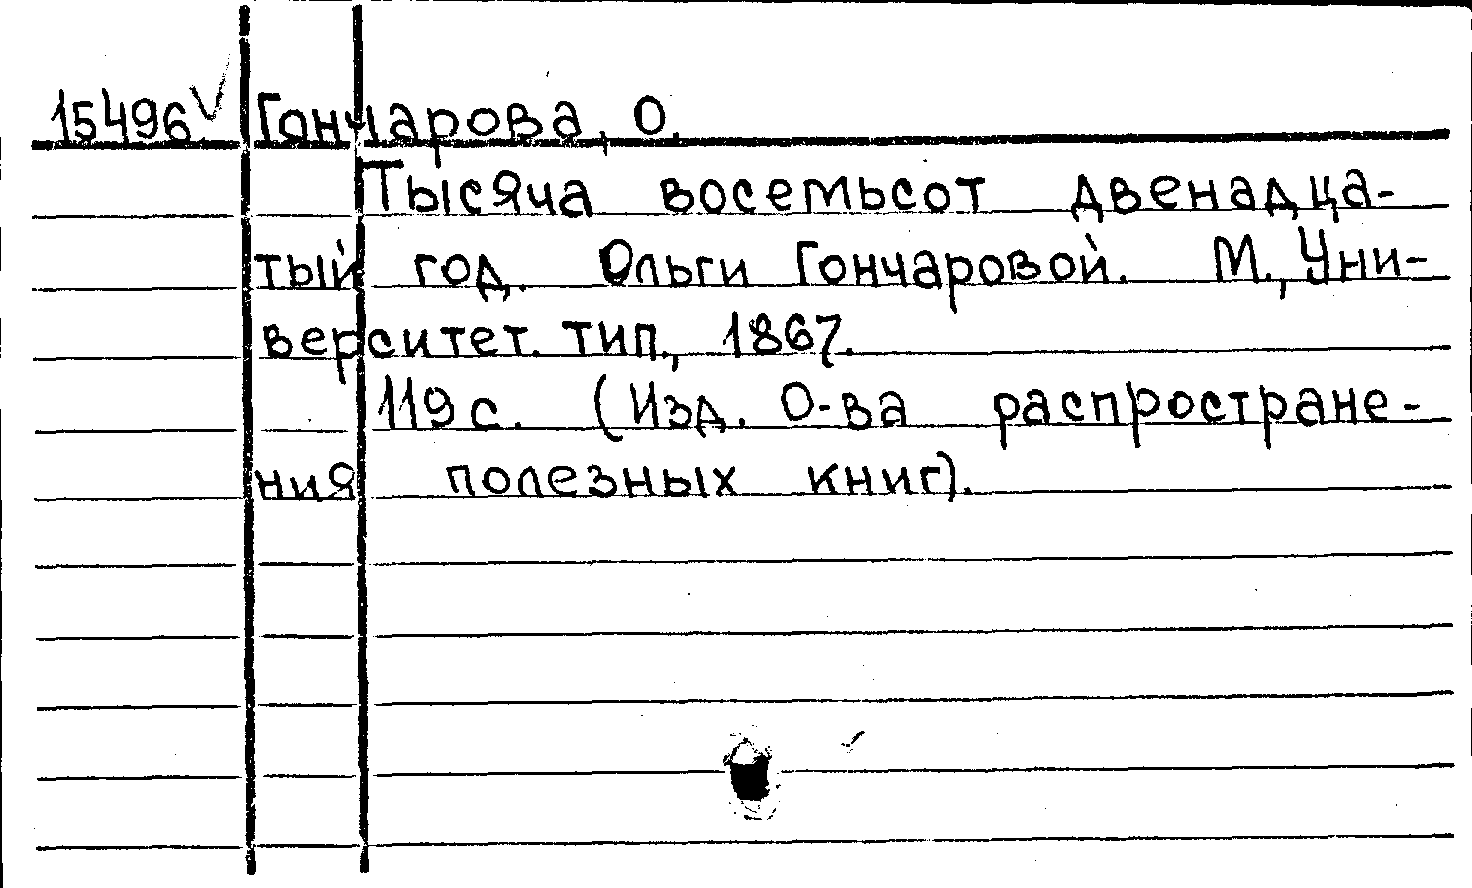 15496 Гончарова, О.
Тысяча восемьсот двенадца-
тый год. Ольги Гончаровой. М., Уни-
верситет. тип., 1867.
119 с. (Изд. О-ва распростране-
ния полезных книг).